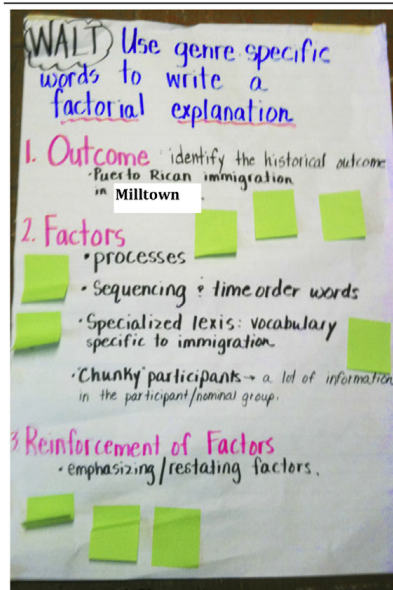 WALT Use genre specific
words to write a
factorial explanation
1. Outcome identify the historical outcome
• Puerto Rican immigration
in Milltown.
2. Factors
• processes
• Sequencing & time order words
• Specialized lexis: vocabulary
specific to immigration
• "Chunky" participants → a lot of information
in the participant/nominal group.
3. Reinforcement of Factors
• emphasizing/restating factors.